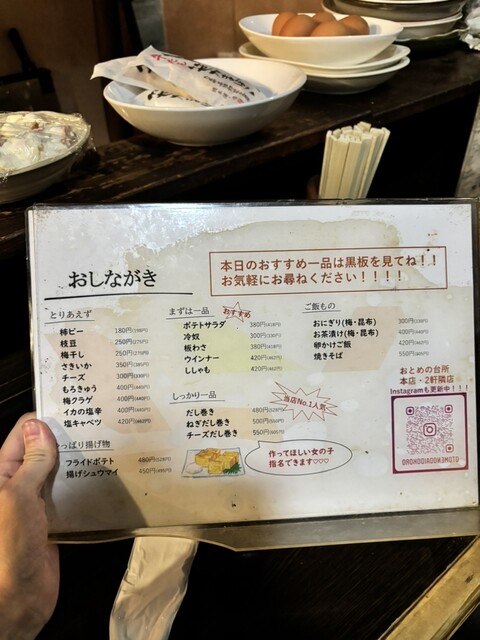 おしながき
本日のおすすめ一品は黒板を見てね！！
お気軽にお尋ねください！！！！
とりあえず
柿ピー 180円(198円)
枝豆 250円(275円)
梅干し 250円(275円)
さきいか 350円
チーズ 300円
もろきゅう 400円(440円)
梅クラゲ 400円(440円)
イカの塩辛 400円(440円)
塩キャベツ 420円
まずは一品
おすすめ
ポテトサラダ 380円(418円)
冷奴 300円
板わさ 380円
ウインナー 420円
ししゃも 420円
しっかり一品
だし巻き 480円
ねぎだし巻き 500円
チーズだし巻き 550円
当店No.1人気
作ってほしい女の子
指名できます♡♡♡
っぱり揚げ物
フライドポテト 480円
揚げシュウマイ 450円
ご飯もの
おにぎり(梅・昆布) 300円
お茶漬け(梅・昆布) 400円
卵かけご飯 400円
焼きそば 550円
おとめの台所
本店・2軒隣店
Instagramも更新中！！